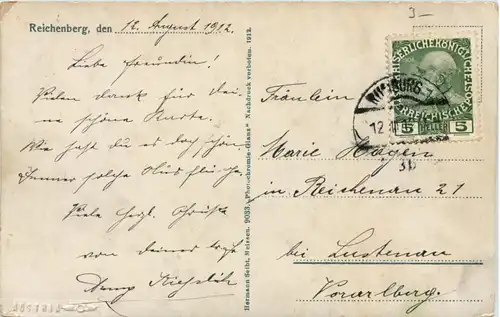 3-
Reichenberg, den 12. August 1912.
Liebe Freundin!
Vielen Dank für dei-
ne schöne Karte.
Wie hast du es doch schön
Immer solche Ausflüge
Viele herzl. Grüße
von deiner
Hermann Seibt, Meissen. 9033. „Photochromie-Glanz“ Nachdruck verboten. 1912.
KAISERLICHE KÖNIGLICHE
ÖSTERREICHISCHE
5 HELLER 5
12
Fräulein
Marie Hagen
in Reichenau 21
bei Lustenau
Vorarlberg.